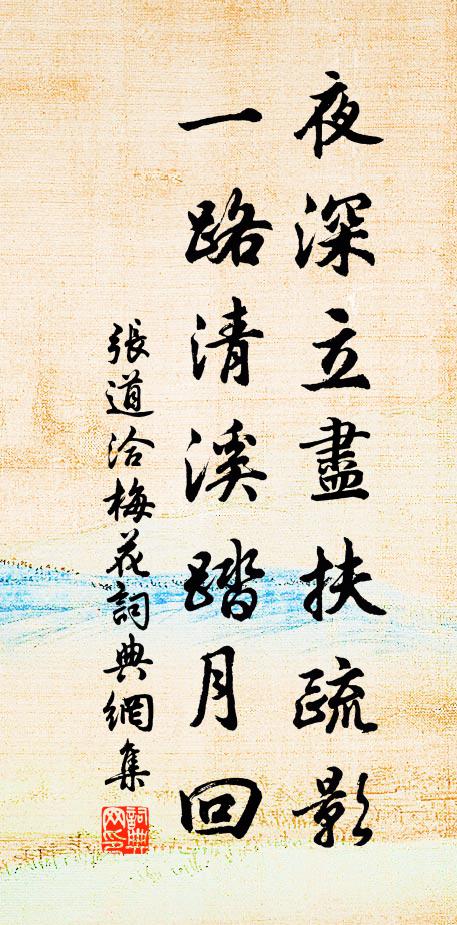 夜深立盡扶疏影
一路清溪踏月回
張道洽梅花詞典網集
詞典網印